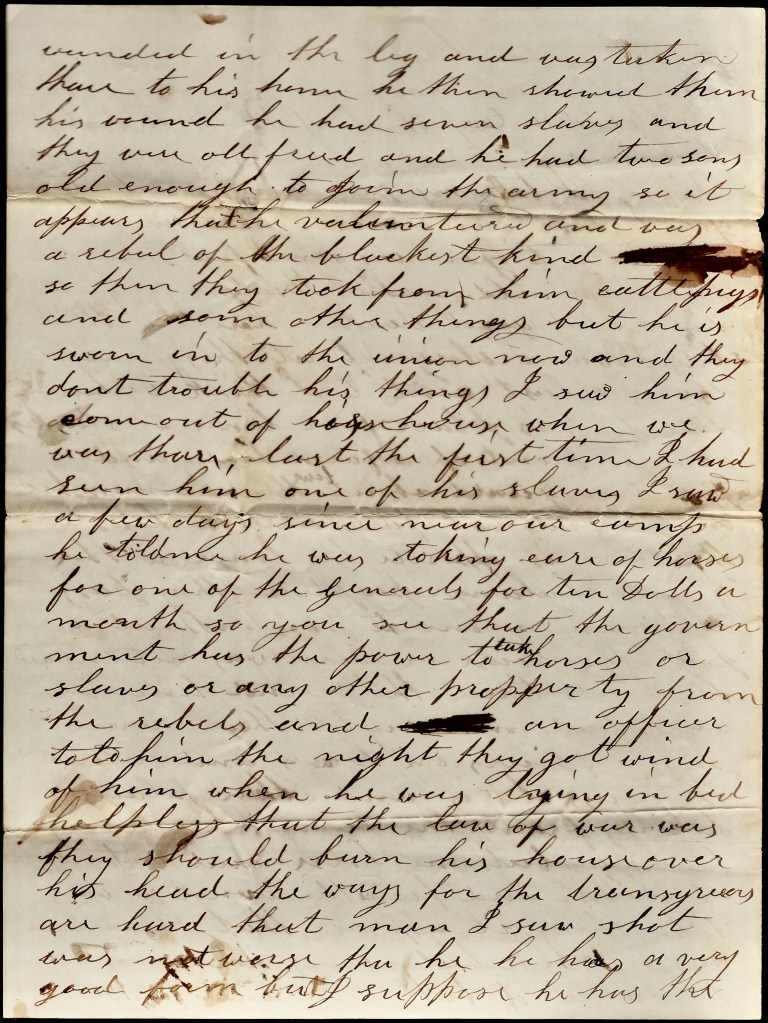 wounded in the leg and was taken
thare to his home he then showed them
his wound he had seven slaves and
they were all freed and he had two sons
old enough to join the army so it
appears that he valuntered and was
a rebel of the blackest kind
so then they took from him cattle pigs
and some other things but he is
sworn in to the union now and they
dont trouble his things I saw him
come out of his house when we
was thare last the first time I had
seen him one of his slaves I saw
a few days since near our camp
he told me he was taking care of horses
for one of the generals for ten Dolls a
month so you see that the govern
ment has the power to take horses or
slaves or any other propperty from
the rebels and an officer
told him the night they got wind
of him when he was lying in bed
helpless that the law of war was
they should burn his house over
his head the ways for the transgreors
are hard that man I saw shot
was not worse tha he he has a very
good farm but I suppose he has the